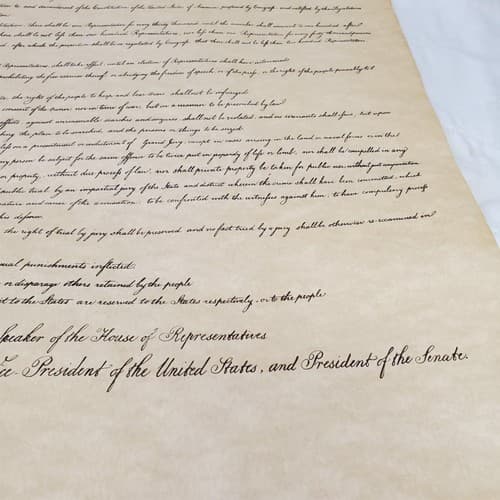 to and amendment of the Constitution of the United States of America, proposed by Congress and ratified by the Legislatures
there shall be one Representative for every thirty thousand until the number shall amount to one hundred after
there shall be not less than one hundred Representatives, nor less than one Representative for every forty thousand persons
after which the proportion shall be so regulated by Congress, that there shall not be less than two hundred Representatives
Representatives shall take effect, until an election of Representatives shall have intervened
prohibiting the free exercise thereof; or abridging the freedom of speech, or of the press, or the right of the people peaceably to
the right of the people to keep and bear arms shall not be infringed
consent of the owner, nor in time of war, but in a manner to be prescribed by law
effects against unreasonable searches and seizures shall not be violated, and no warrants shall issue, but upon
the place to be searched, and the persons or things to be seized.
on a presentment or indictment of a Grand Jury, except in cases arising in the land or naval forces or in the
any person be subject for the same offence to be twice put in jeopardy of life or limb, nor shall be compelled in any
or property, without due process of law, nor shall private property be taken for public use without just compensation
public trial by an impartial jury of the State and district wherein the crime shall have been committed, which
nature and cause of the accusation, to be confronted with the witnesses against him, to have compulsory process
his defence.
the right of trial by jury shall be preserved and no fact tried by a jury shall be otherwise re-examined in
punishments inflicted.
or disparage others retained by the people
it to the States are reserved to the States respectively, or to the people
Speaker of the House of Representatives
President of the United States, and President of the Senate.